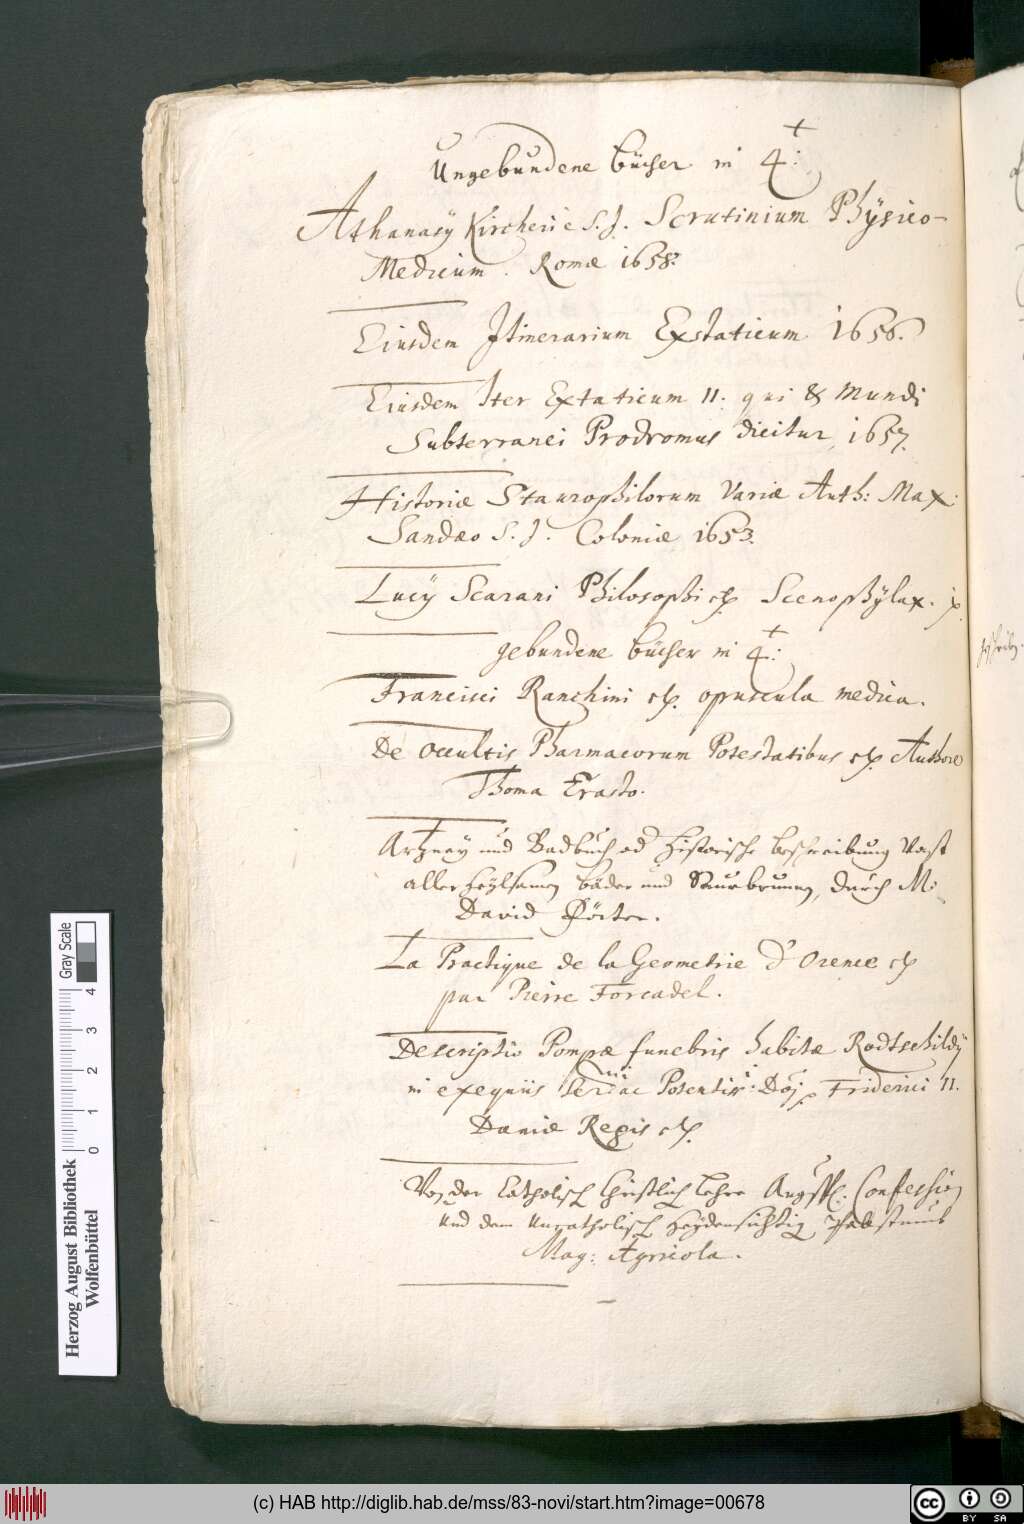 Ungebundene bücher in 4t:
Athanasÿ Kircheri è S. J. Scrutinium Phÿsico-
Medicum. Romæ 1658.
Eiusdem Itinerarium Exstaticum 1656.
Eiusdem Iter Extaticum 11. qui & Mundi
Subterranei Prodromus dicitur, 1657.
Historiæ Staurophilorum Variæ Auth: Max:
Sandæo S. J. Coloniæ 1653.
Lucÿ Scarani Philosophi etc. Scenophÿlax.
gebundene bücher in 4t:
Francisci Ranchini etc. opuscula medica.
De occultis Pharmacorum Potestatibus etc. Authore
Thoma Erasto.
Artzneÿ und Badbuch od Historische beschreibung Vast
aller heÿlsamen bäder und Saurbrunnen, durch M:
David
La Practique de la Geometrie d'Oronce etc
par Pierre Forcadel.
Descriptio Pompæ funebris habitæ Rodtschildÿ
in exequiis Potentis: Dnj. Friderici 11.
Daniæ Regis etc.
Von der Catholisch Christlich Lehre Augsp: Confession
Und dem Uncatholisch Pabstumb
Mag: Agricola.
Herzog August Bibliothek
Wolfenbüttel
0 1 2 3 4
Gray Scale
(c) HAB http://diglib.hab.de/mss/83-novi/start.htm?image=00678
cc BY SA